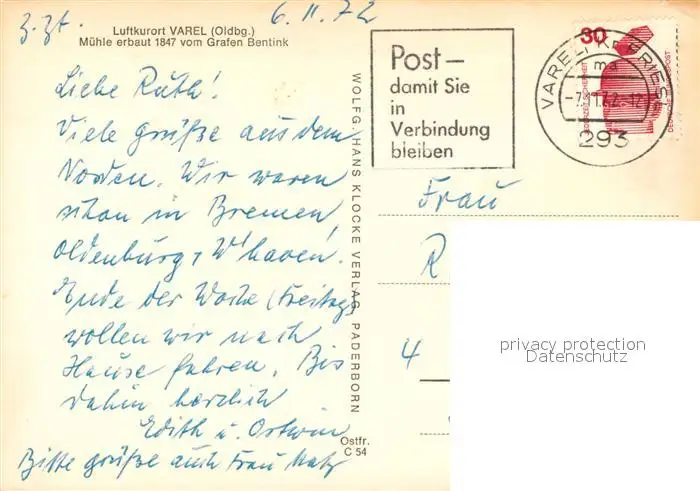 z. Zt. 6.11.72
Luftkurort VAREL (Oldbg.)
Mühle erbaut 1847 vom Grafen Bentink
Liebe Ruth!
Viele grüße aus dem
Norden. Wir waren
schon in Bremen,
Oldenburg, W'haven.
Ende der Woche (Freitag)
wollen wir nach
Hause fahren. Bis
dahin herzlich
Edith u. Ortwin
Bitte grüße auch Frau
WOLFG. HANS KLOCKE VERLAG PADERBORN
Ostfr.
C 54
Post –
damit Sie
in
Verbindung
bleiben
30
DEUTSCHE BUNDESPOST
VAREL, KR FRIESL
ma
-7.11.72-12
293
Frau
R
4
privacy protection
Datenschutz